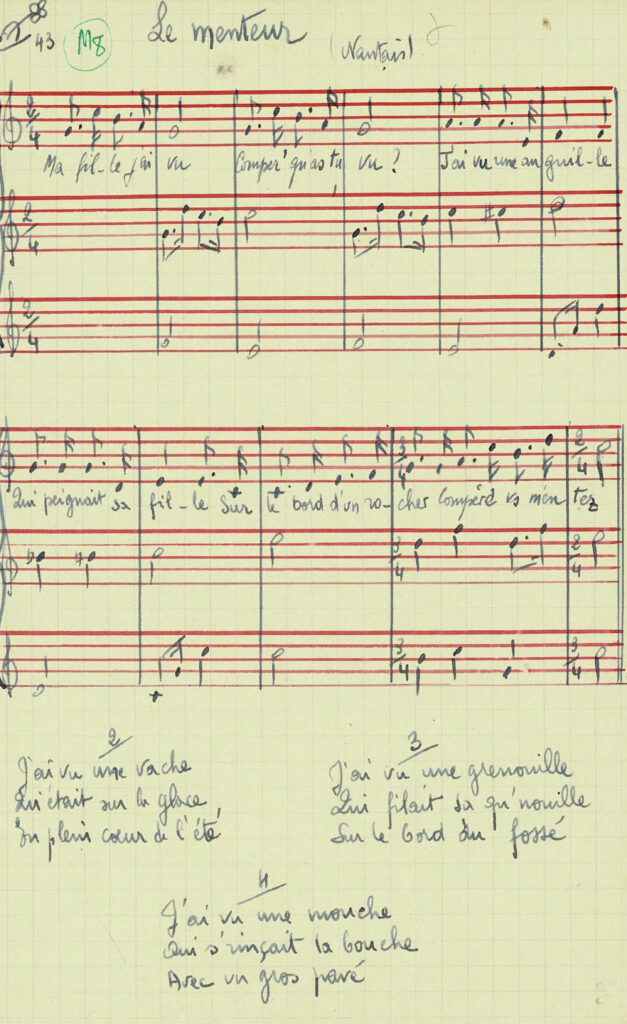 88
43
M8
Le menteur
(Nantais)
Ma fil-le j'ai vu Compèr' qu'as tu vu ? J'ai vu une an guil-le
Qui peignait sa fil-le Sur le bord d'un ro-cher Compère vs men tez
2
J'ai vu une vache
Qui était sur la glace
En plein cœur de l'été
3
J'ai vu une grenouille
Qui filait sa qu'nouille
Sur le bord du fossé
4
J'ai vu une mouche
Qui s'rinçait la bouche
Avec un gros pavé